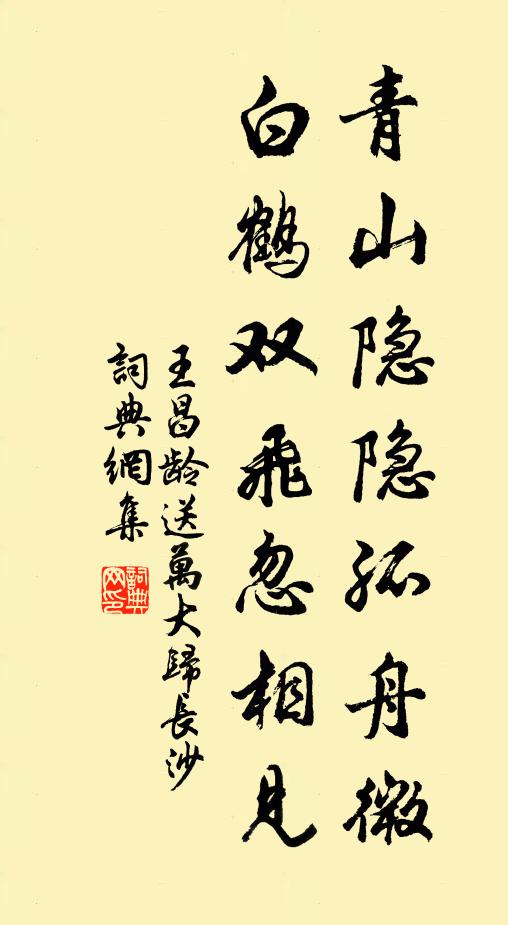 青山隐隐孤舟微
白鹤双飞忽相见
王昌龄送萬大歸長沙
詞典網集
詞典
网印